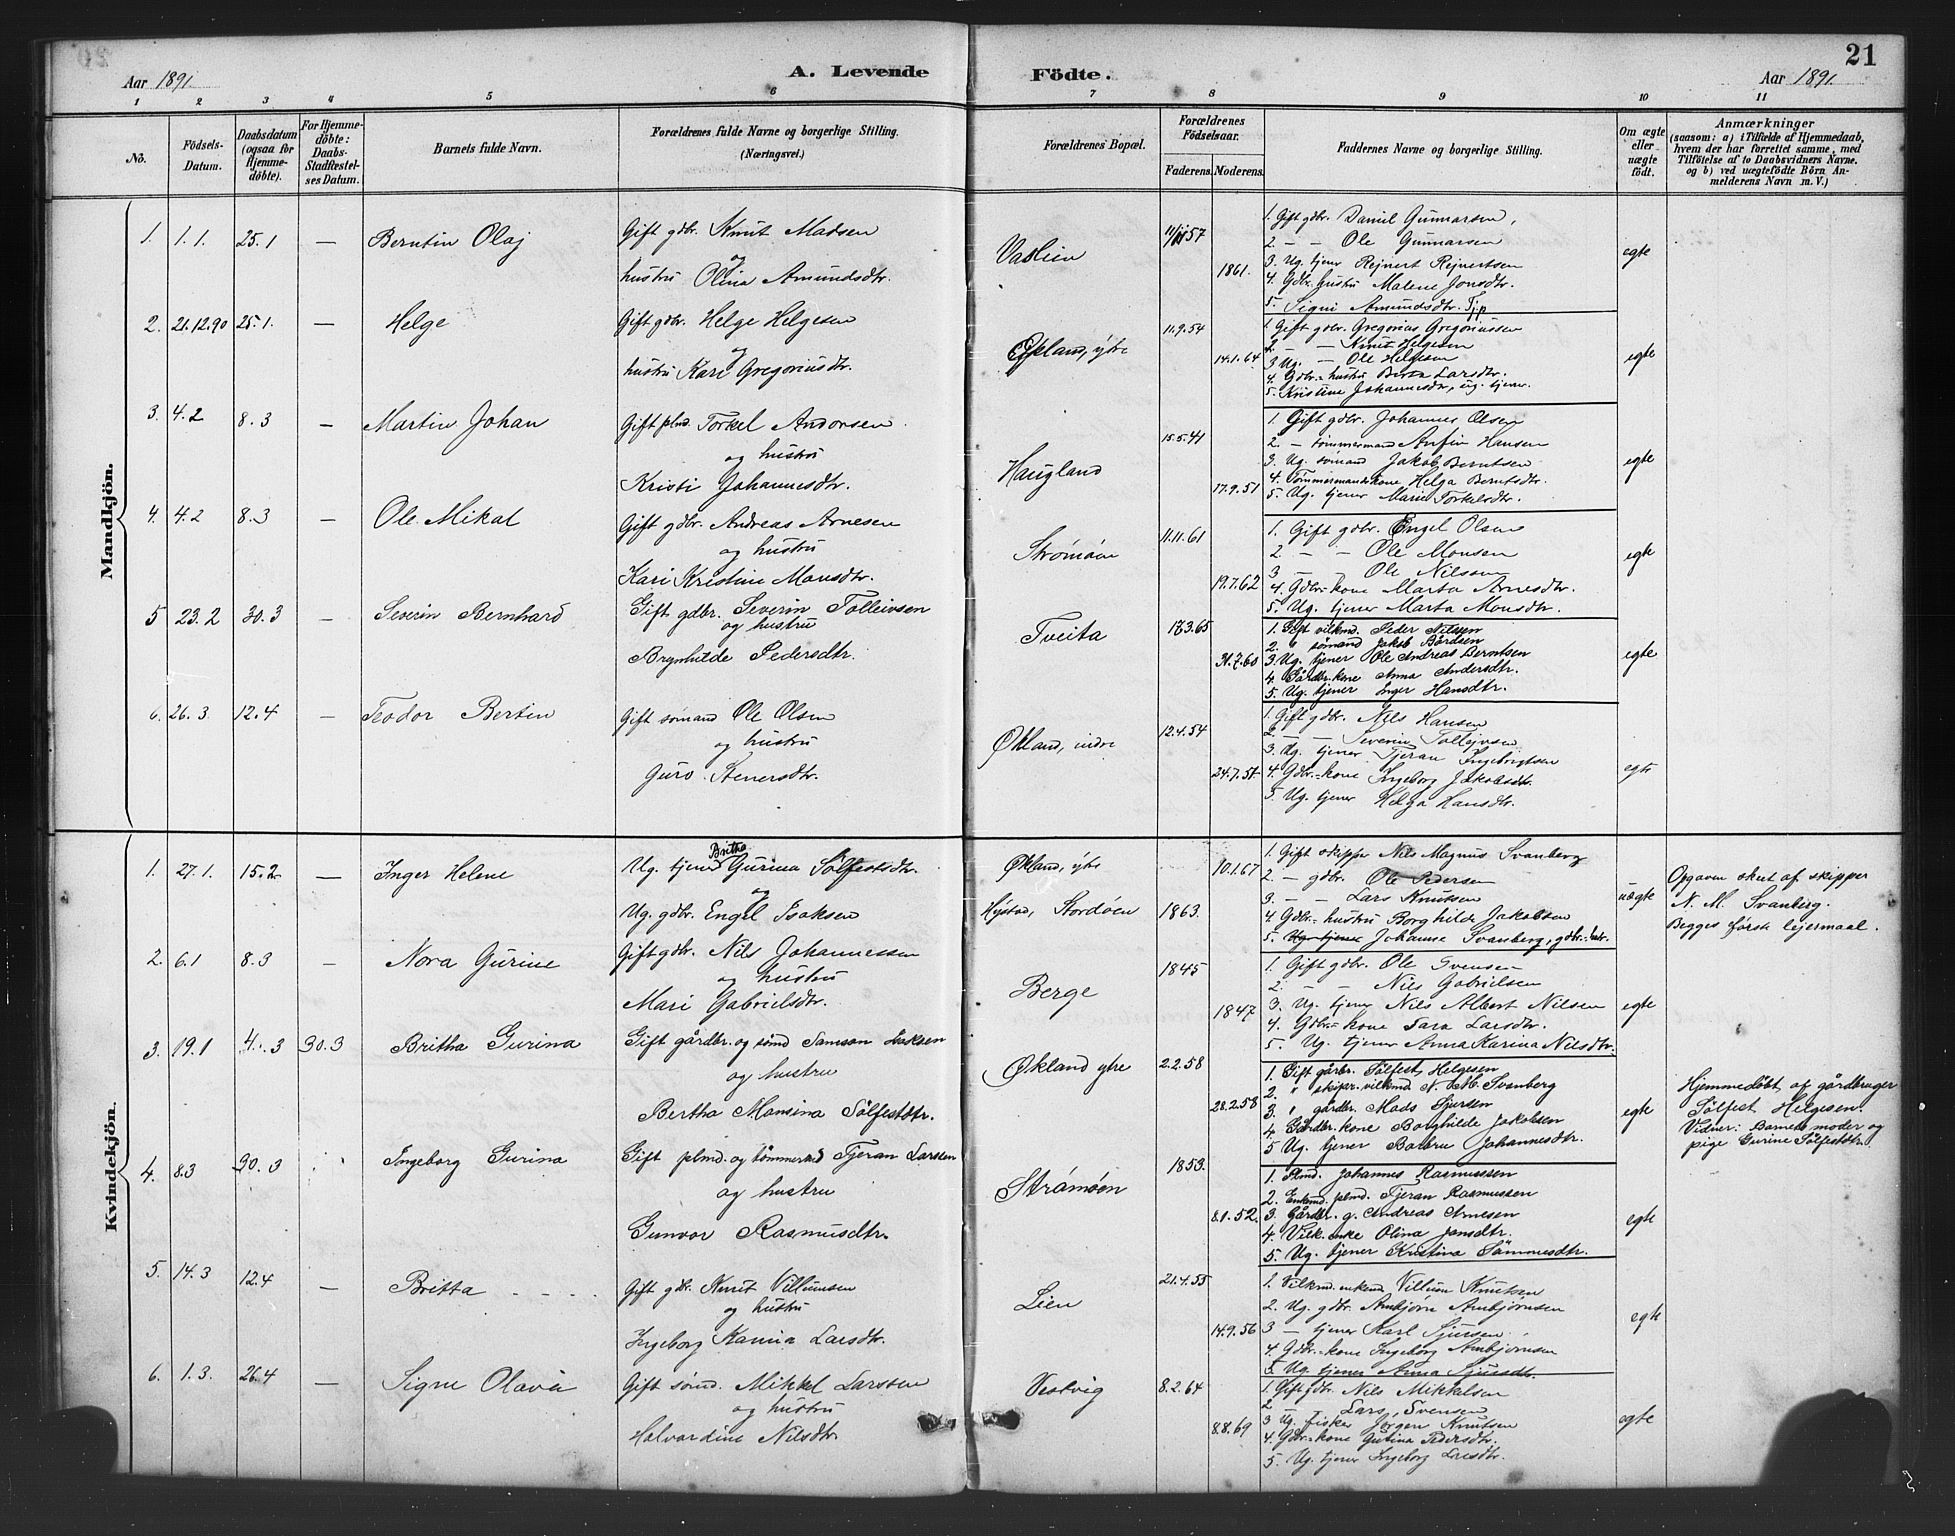 Aar 1891.
A. Levende Födte.
21
Aar 1891.
1 2 3 4 5 6 7 8 9 10 11
No.
Födsels-Datum.
Daabsdatum (ogsaa for Hjemme-döbte).
For Hjemme-döbte: Daabs-Stadfestel-ses Datum.
Barnets fulde Navn.
Forældrenes fulde Navne og borgerlige Stilling. (Næringsvei.)
Forældrenes Bopæl.
Forældrenes Födselsaar.
Faderens. Moderens.
Faddernes Navne og borgerlige Stilling.
Om ægte eller uægte födt.
Anmærkninger
(saasom: a) i Tilfælde af Hjemmedaab, hvem der har forrettet samme, med Tilföielse af to Daabsvidners Navne. og b) ved uægtefödte Börn An-melderens Navn m. V.)
Mandkjön.
1. 1.1. 25.1 — Berntin Olaj
Gift gdbr. Knut Madsen
og
hustru Olina Amundsdtr.
Vaslien
57
1861.
1. Gift gdbr. Daniel Gunnarsen,
2 — — Ole Gunnarsen
3. Ug. tjener Rejnert Rejnertsen
4. Gdbr. hustru Malene Jonsdtr.
5. Signi Amundsdtr.
egte
2. 21.12.90 25.1. — Helge
Gift gdbr. Helge Helgesen
og
hustru Kari Gregoriusdtr.
Økland, ytre
11.9.54
14.1.64
1. Gift gdbr. Gregorius Gregoriussen
2. — — Knut Helgesen
3 Ug. — Ole Helgesen
4. Gdbr.-hustru Berta Larsdtr.
5. Kristine Johannesdtr, ug. tjener.
egte
3. 4.2 8.3 — Martin Johan
Gift plmd. Torkel Andorsen
og hustru
Kristi Johannesdtr.
Haugland
15.5.41
17.9.51
1. Gift gdbr. Johannes Olsen
2. — tømmermand Anfin Hansen
3. Ug. sømand Jakob Berntsen
4. Tømmermandskone Helga Berntsdtr.
5. Ug. tjener Mari Torkelsdtr.
egte
4. 4.2 8.3 — Ole Mikal
Gift gdbr. Andreas Arnesen
og hustru
Kari Kristine Monsdtr.
Strømøen
11.11.61
19.7.62
1. Gift gdbr. Engel Olsen
2 — — Ole Monsen
3 — — Ole Nilsson
4. Gdbr.-kone Marta Arnesdtr.
5. Ug. tjener Marta Monsdtr.
egte
5 23.2 30.3 — Severin Bernhard
Gift gdbr. Severin Tolleivsen
og hustru
Brynhilde Pedersdtr.
Tveita
31.7.60
1. Gift vilkmd. Peder Nilssen
2. " sømand Jakob Bårdsen
3. Ug. tjener Ole Andreas Berntsen
4. Gårdbr. kone Anna Andersdtr.
5. Ug. tjener Inger Hansdtr.
egte
6. 26.3. 12.4 — Teodor Bertin
Gift sømand Ole Olsen
og hustru
Guro Stenersdtr.
Økland, indre
12.4.54
24.7.51
1. Gift gdbr. Nils Hansen
2 — — Severin Tollejvsen
3. Ug. tjener Tjeran Ingebrigtsen
4. Gdbr.-kone Ingeborg Jakobsdtr.
5. Ug. tjener Helga Hansdtr.
egte
Kvindekjön.
1. 27.1. 15.2 — Inger Helene
Ug. tjener Britha Gurina Sølfestsdtr.
og
Ug. gdbr. Engel Isaksen
Økland, ytre
Hystad, Stordøen
1863.
10.1.67
1. Gift skipper Nils Magnus Svanberg
2 — gdbr. Ole Pedersen
3. — — Lars Knutsen
4. Gdbr.-hustru Borghilde Jakobsen
5. Ug. tjener Johanne Svanberg, gdbr.-hustr.
uægte
Opgaven skeet af skipper
N. M. Svanberg.
Begges første lejermaal.
2. 6.1 8.3 — Nora Gurine
Gift gdbr. Nils Johannessen
og hustru
Mari Gabrielsdtr.
Berge
1845
1847
1. Gift gdbr. Ole Svensen
2. — — Nils Gabrielsen
3. Ug. tjener Nils Albert Nilsen
4. Gdbr.-kone Sara Larsdtr.
5. Ug. tjener Anna Karina Nilsdtr.
egte
3. 19.1 4.3 30.3 Britha Gurina
Gift gårdbr. og sømd Samson Isaksen
og hustru
Bertha Mansina Sølfestdtr.
Økland ytre
2.2.58
28.2.58
1. Gift gårbr. Sølfest Helgesen
2. " skipr. vilkmd N. M. Svanberg
3. " gårdbr. Mads Sjursen
4. Gårdbr. kone Borghilde Jakobsen
5 Ug. tjener Barbru Johannesdtr.
egte
Hjemmedøbt af gårdbruger
Sølfest Helgesen.
Vidner: Barnets moder og
pige Gurine Sølfestdtr.
4. 8.3 30.3 Ingeborg Gurina
Gift plmd. og tømmermd Tjeran Larssen
og hustru
Gunvor Rasmusdtr.
Strømøen
1853.
8.1.52.
1. Plmd. Johannes Rasmussen
2. Enkemd. plmd. Tjeran Rasmussen
3. Gårdbr. g. Andreas Arnesen
4. Vilk. enke Olina Jansdtr.
5. Ug. tjener Kristina Sømmesdtr.
egte
5. 14.3 12.4 — Britta
Gift gdbr. Knut Villumsen
og hustru
Ingeborg Kanna Larsdtr.
Lien
21.4.55
14.9.56
1. Vilkmd. enkemd Villum Knutsen
2. Ug. gdbr. Ambjørn Ambjørnsen
3 — tjener Karl Sjursen
4. Gdbr.-kone Ingeborg Ambjørnsen
5. Ug. tjener Anna Sjursdtr.
egte
6. 1.3. 26.4 — Signe Olava
Gift sømd. Mikkel Larssen
og hustru
Halvardine Nilsdtr.
Vestvig
8.2.64
8.8.69
1. Gift gdbr. Nils Mikkelsen
2 — Lars Svensen
3 Ug. fisker Jørgen Knutsen
4. Gdbr.-kone Gurina Pedersdtr.
5. Ug. tjener Ingeborg Larsdtr.
egte